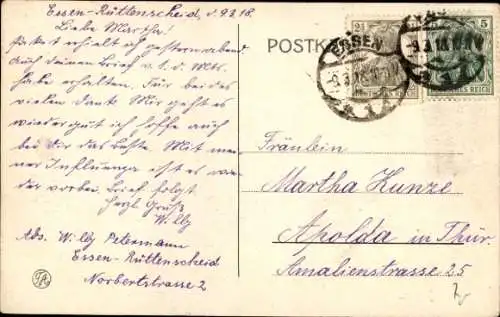 Essen-Rüttenscheid, d. 9.3.18.
Liebe Martha!
Paket erhielt ich gestern abend
Auch deinen Brief v. 1. d. Mts.
habe erhalten. Für beides
vielen Dank. Mir geht es
wieder gut ich hoffe auch
bei dir das beste. Mit mei
ner Influenza ist es wie
der vorbei. Brief folgt
Herzl. Gruß
Willy
Abs. Willy Petermann
Essen-Rüttenscheid
Norbertstrasse 2
POSTK
ESSEN
-9.3.18
2½
ESSEN
-9.3.18
5
DEUTSCHES REICH
Fräulein
Martha Kunze
Apolda in Thür.
Amalienstrasse 25